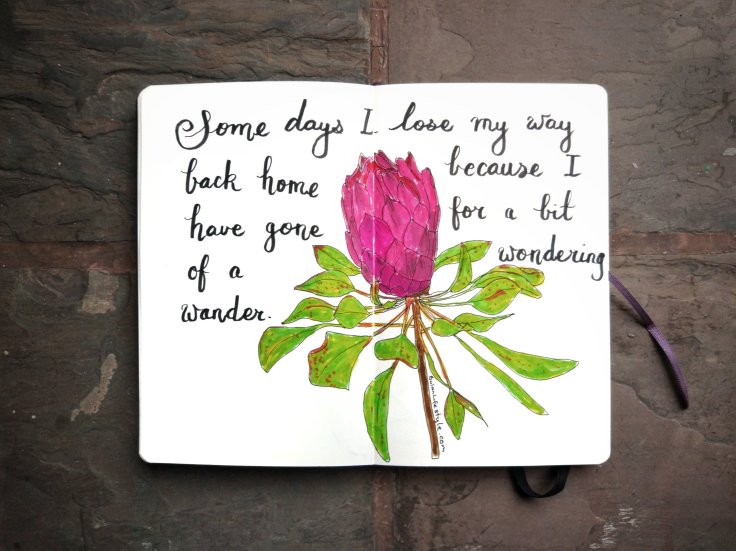 Some days I lose my way
back home because I
have gone for a bit
of a wondering
wander.